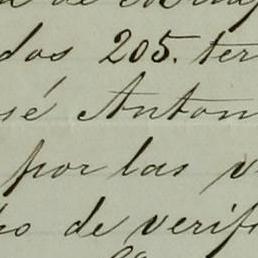 dos 205. ter
sé Anton
por las v
o de verif